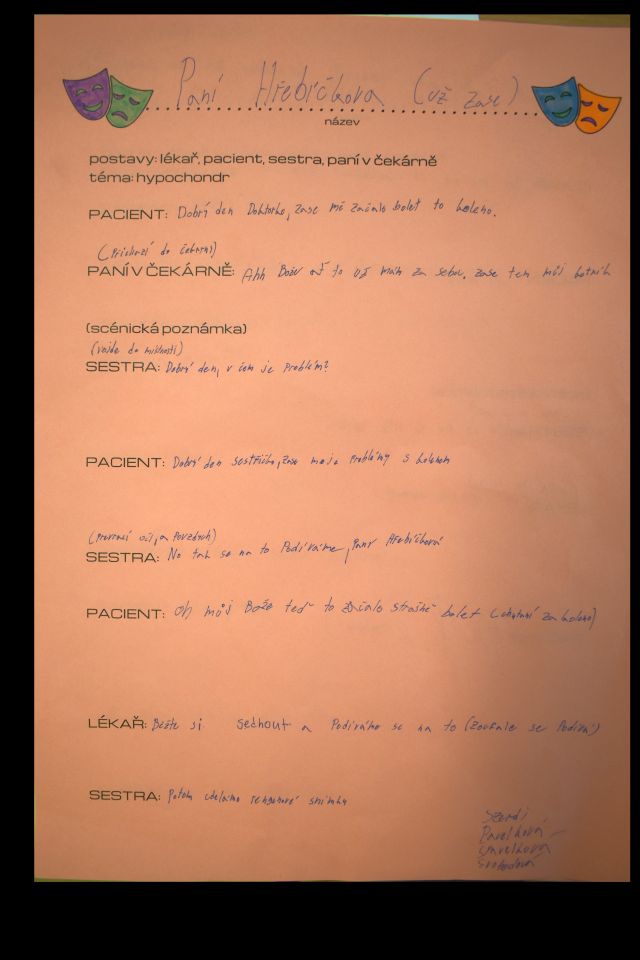 Paní Hřebíčkova (už zase)
název
postavy: lékař, pacient, sestra, paní v čekárně
téma: hypochondr
PACIENT: Dobrí den Doktorko, zase mě začalo bolet to koleno.
(Přichází do čekarni)
PANÍ V ČEKÁRNĚ: Ahh Božu ať to už mám za sebou, zase ten můj kotník
(scénická poznámka)
(vejde do místnosti)
SESTRA: Dobrí den, v čem je Problém?
PACIENT: Dobrí den sestřičko, zase moje Problémy s kolenem
(Prevrací oči, a Povzdych)
SESTRA: No tak se na to Podíváme, Paní Hřebíčková
PACIENT: oh můj Bože teď to začalo strašně bolet (chytaní za koleno)
LÉKAŘ: Běžte si sednout a Podíváme se na to (Zoufale se Podívá)
SESTRA: Potom uděláme rengenové snímky
Szendi
Pavelková
Svobodová